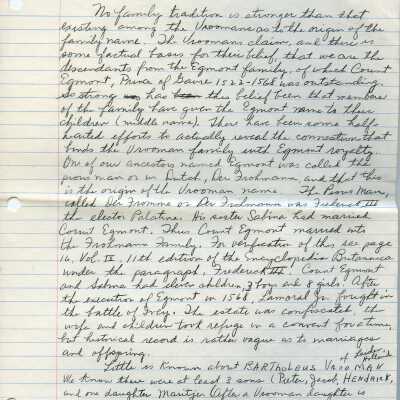 No family tradition is stronger than that
existing among the Vroomans as to the origin of the
family name. The Vroomans claim, and there is
some factual basis for their belief, that we are the
descendants from the Egmont family, of which Count
Egmont, Prince of Gavre 1522-1568 was outstanding.
So strong has been this belief been that members
of the family have given the Egmont name to their
children (middle name). There have been some half-
hearted efforts to actually reveal the connection that
binds the Vrooman family with Egmont royalty.
One of our ancestors named Egmont was called the
pious man or in Dutch, Der Frohmann, and that this
is the origin of the Vrooman name. The Pious Man,
called Der Fromme or Der Frohmann was Frederick III
the elector Palatine. His sister Sabina had married
Count Egmont. Thus Count Egmont married into
the Frohmann Family. For verification of this see page
16, Vol. IX, 11th edition of the Encyclopedia Britannica
under the paragraph, Frederick III. Count Egmont
and Sabina had eleven children, 3 boys and 8 girls. After
the execution of Egmont in 1568, Lamoral Jr. fought in
the battle of Ivry. The estate was confiscated, the
wife and children took refuge in a convent for a time,
but historical record is rather vague as to marriages
and offspring.
Little is known about BARTHOLEUS VROOMAN of Leyden Holland
We know there were at least 3 sons (Pieter, Jacob, HENDRICK,
and one daughter Maritjen. After a Vrooman daughter is